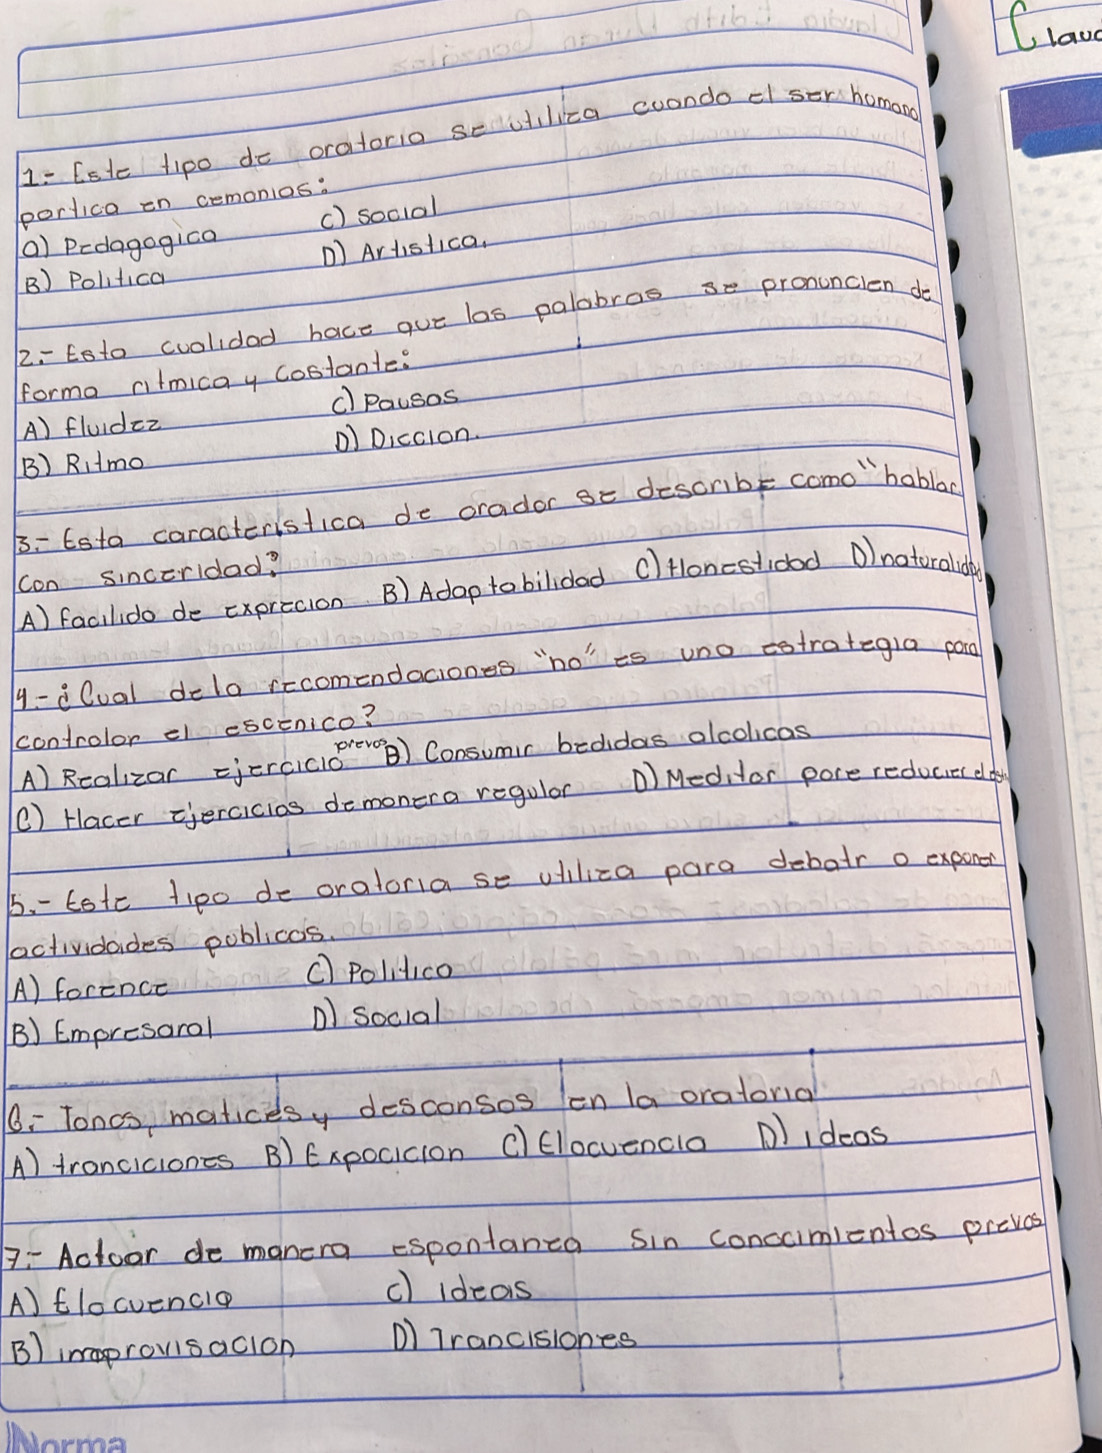 Clauc
1.- Este tipo de oratoria se utiliza cuando el ser humano
partica en cemonias:
a) Pedagogica
C) social
B) Politica
D) Artistica.
2.- Esta cualidad hace que las palabras se pronuncien de
forma ritmica y costante:
A) fluidez
C) Pausas
B) Ritmo
D) Diccion.
3.- Esta caracteristica de orador se describe como "hablar
con sinceridad?
A) facilida de exprecion B) Adaptabilidad C) Honestidad D) naturalidad
4.- ¿Cual dela recomendaciones "no" es una estrategia para
controlar el escenico?
A) Realizar ejercicio prevos B) Consumir bedidas alcolicas
C) Hacer ejercicios de manera regular D) Meditar para reducier el
5.- Este tipo de oratoria se utiliza para debatr o exponer
actividades publicas.
A) forence
C) Politico
B) Empresaral
D) Social
6.- Tonos, matices y descansos en la oratoria
A) tranciciones B) Expocicion C) Elocuencia D) ideas
7.- Actuar de manera espontanea sin conocimientos prevos
A) Elocuencia
C) ideas
B) improvisacion
D) Trancisiones
Norma